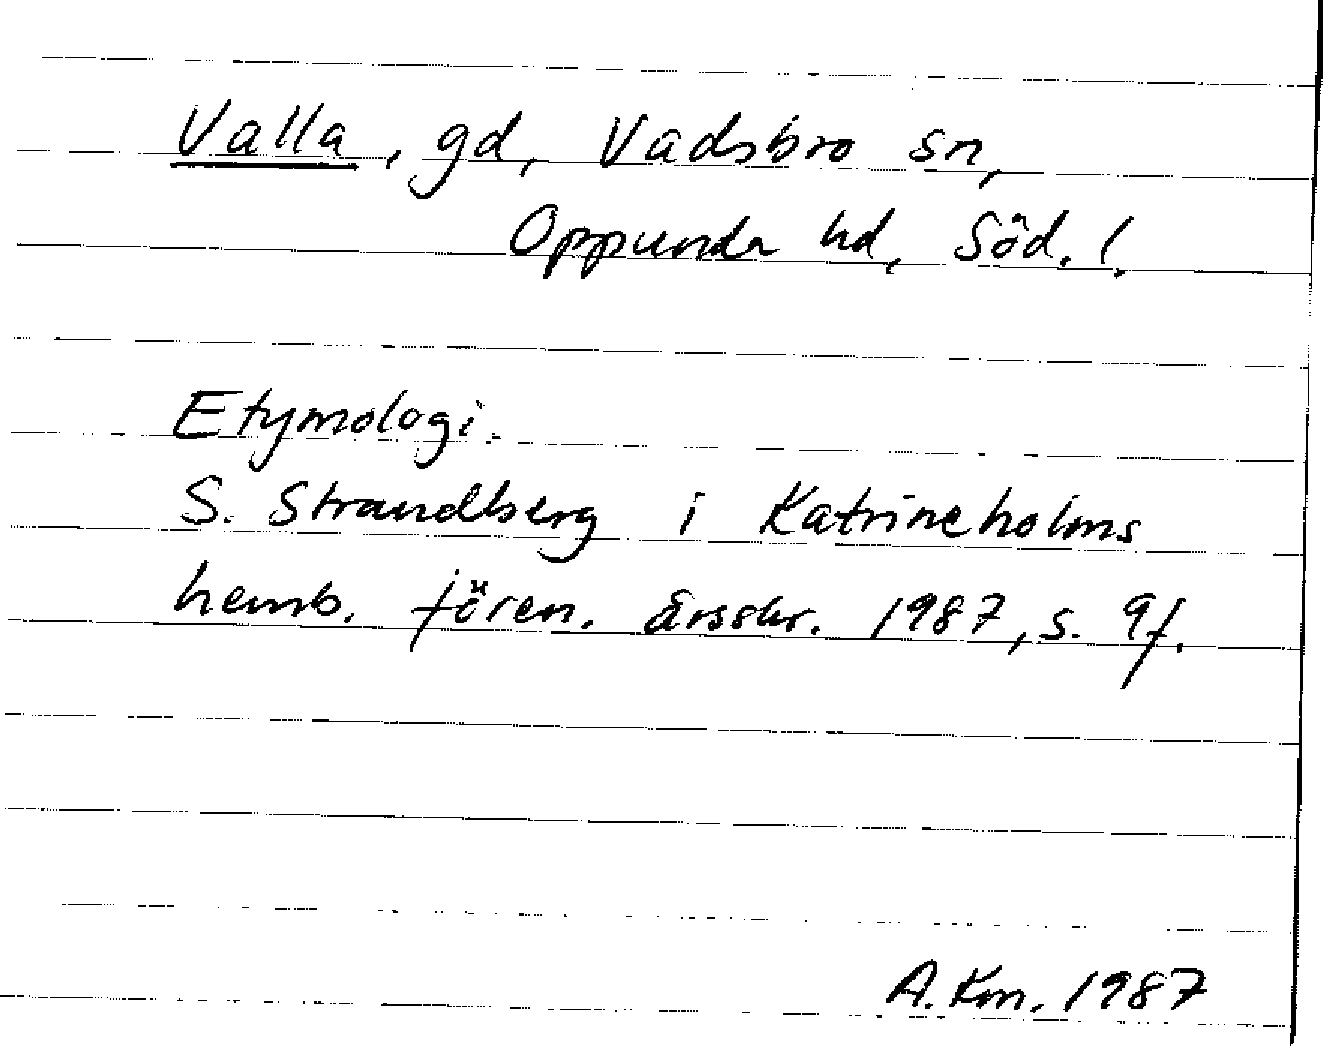 Valla, gd, Vadsbro sn,
Oppunda hd, Söd. l.
Etymologi:
S. Strandberg i Katrineholms
hemb. fören. årsskr. 1987, s. 9f.
A.Km. 1987